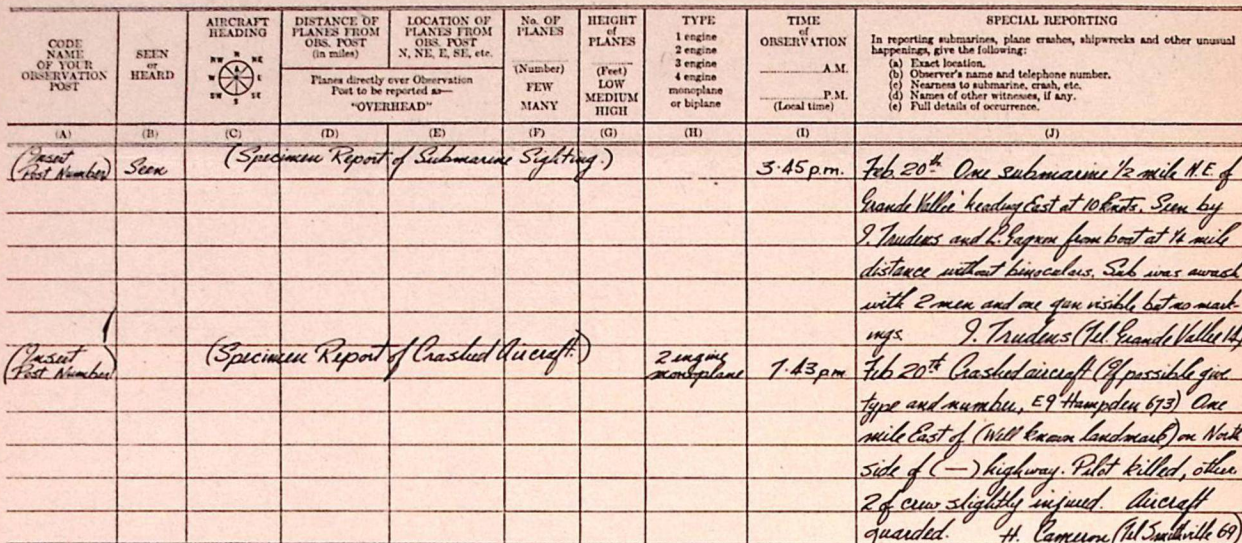 CODE NAME OF YOUR OBSERVATION POST
SEEN or HEARD
AIRCRAFT HEADING
N NE E SE S SW W NW
DISTANCE OF PLANES FROM OBS. POST (in miles)
LOCATION OF PLANES FROM OBS. POST N, NE, E, SE, etc.
Planes directly over Observation Post to be reported as— "OVERHEAD"
No. OF PLANES (Number) FEW MANY
HEIGHT of PLANES (Feet) LOW MEDIUM HIGH
TYPE 1 engine 2 engine 3 engine 4 engine monoplane or biplane
TIME of OBSERVATION ........A.M. ........P.M. (Local time)
SPECIAL REPORTING
In reporting submarines, plane crashes, shipwrecks and other unusual
happenings, give the following:
(a) Exact location.
(b) Observer's name and telephone number.
(c) Nearness to submarine, crash, etc.
(d) Names of other witnesses, if any.
(e) Full details of occurrence.
(A) (B) (C) (D) (E) (F) (G) (H) (I) (J)
(Insert Post Number) Seen (Specimen Report of Submarine Sighting.) 3.45 p.m. Feb. 20th One submarine 1/2 mile N.E. of
Grande Vallée heading East at 10 knots. Seen by
J. Trudens and L. Gagnon from boat at 1/4 mile
distance without binoculars. Sub was awash
with 2 men and one gun visible but no mark-
ings. J. Trudens (Tel. Grande Vallée 14)
(Insert Post Number) (Specimen Report of Crashed Aircraft.) 2 engine monoplane 7.43 pm Feb 20th Crashed aircraft (If possible give
type and number, E9 Hampden 673) One
mile East of (Well known landmark) on North
side of (—) highway. Pilot killed, other
2 of crew slightly injured. Aircraft
guarded. H. Cameron (Tel Smithville 69)